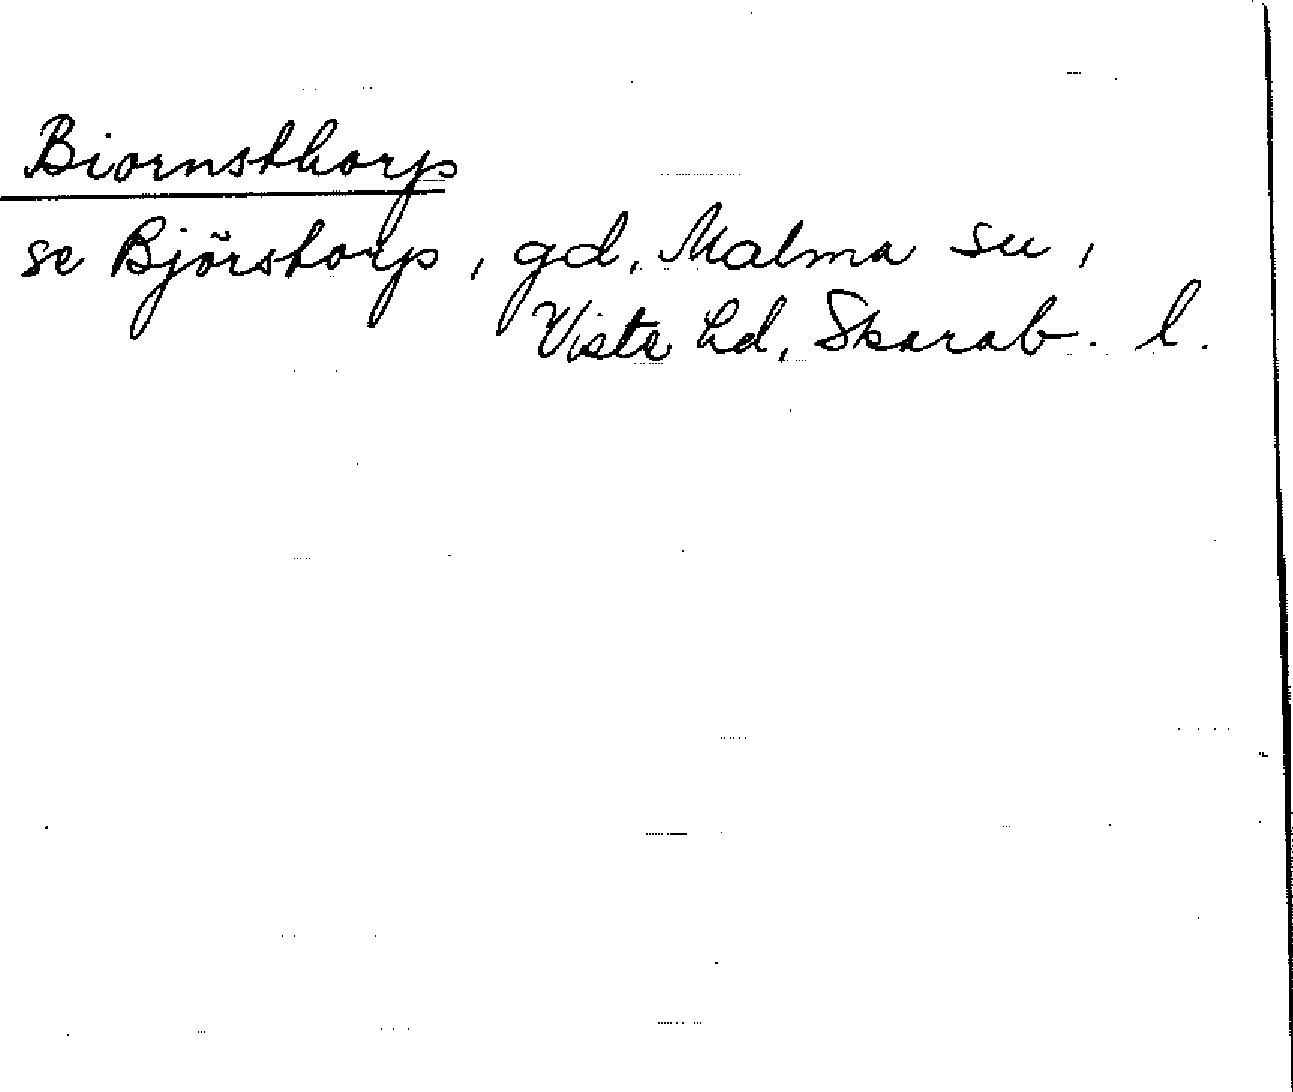 Biornsthorp
se Björstorp, gd, Malma sn,
Vista hd, Skarab. l.